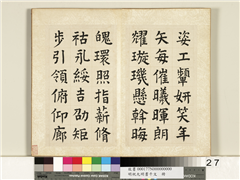 姿工顰妍笑年
矢每催曦暉朗
耀璇璣懸斡晦
魄環照指薪脩
祜永綏吉劭矩
步引領俯仰廊
27